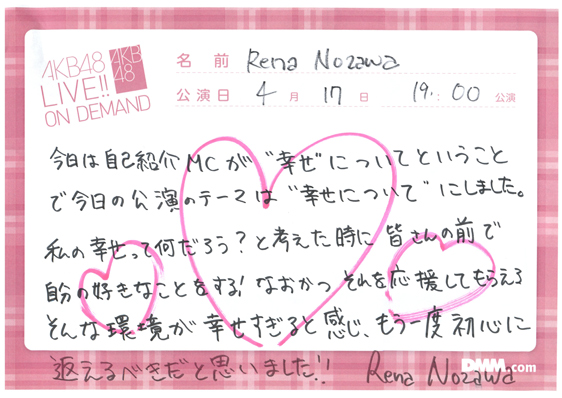 AKB48
LIVE!!
ON DEMAND
AKB
48
名前 Rena Nozawa
公演日 4月17日 19:00 公演
今日は自己紹介MCが"幸せ"についてということ
で今日の公演のテーマは"幸せについて"にしました。
私の幸せって何だろう?と考えた時に皆さんの前で
自分の好きなことをする!なおかつそれを応援してもらえる
そんな環境が幸せすぎると感じ、もう一度初心に
返えるべきだと思いました!! Rena Nozawa
DMM.com